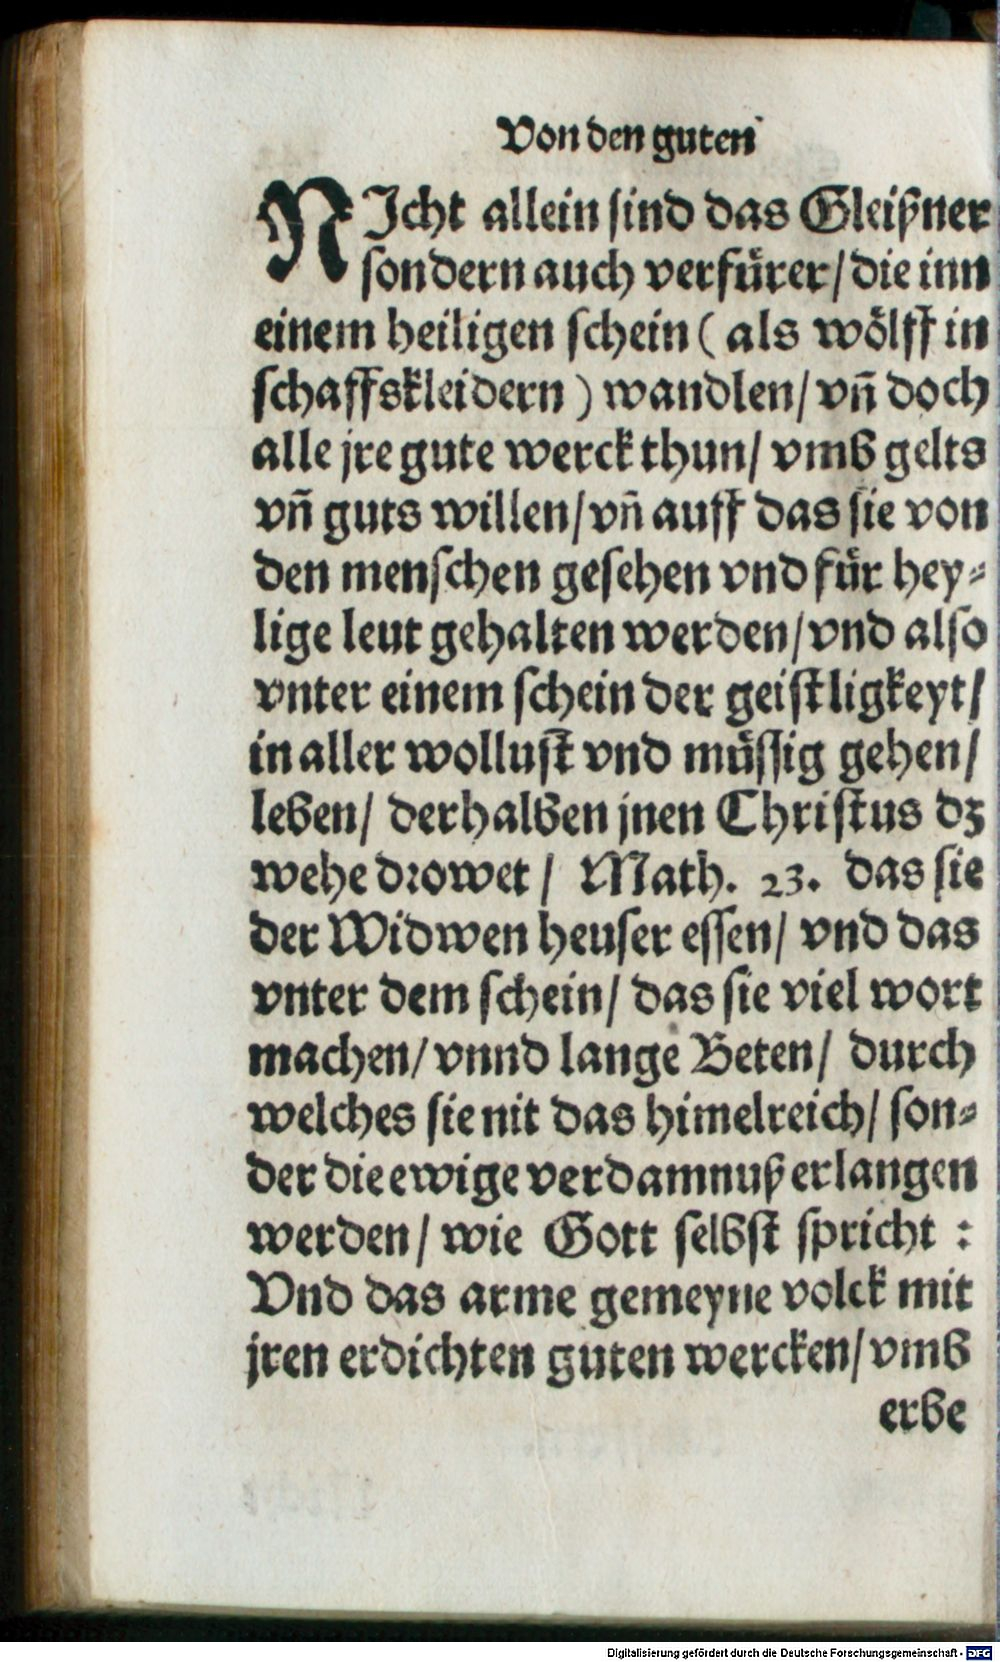 Von den guten
NJcht allein sind das Gleißner
sondern auch verfürer/ die inn
einem heiligen schein ( als wölff in
schaffskleidern ) wandlen/ vn̄ doch
alle jre gute werck thun/ vmb gelts
vn̄ guts willen/ vn̄ auff das sie von
den menschen gesehen vnd für hey⸗
lige leut gehalten werden/ vnd also
vnter einem schein der geistligkeyt/
in aller wollust vnd müssig gehen/
leben/ derhalben jnen Christus dz
wehe drowet / Math. 23. das sie
der Widwen heuser essen/ vnd das
vnter dem schein/ das sie viel wort
machen/ vnnd lange Beten/ durch
welches sie nit das himelreich/ son⸗
der die ewige verdamnuß erlangen
werden/ wie Gott selbst spricht :
Vnd das arme gemeyne volck mit
jren erdichten guten wercken/ vmb
erbe
Digitalisierung gefördert durch die Deutsche Forschungsgemeinschaft - DFG